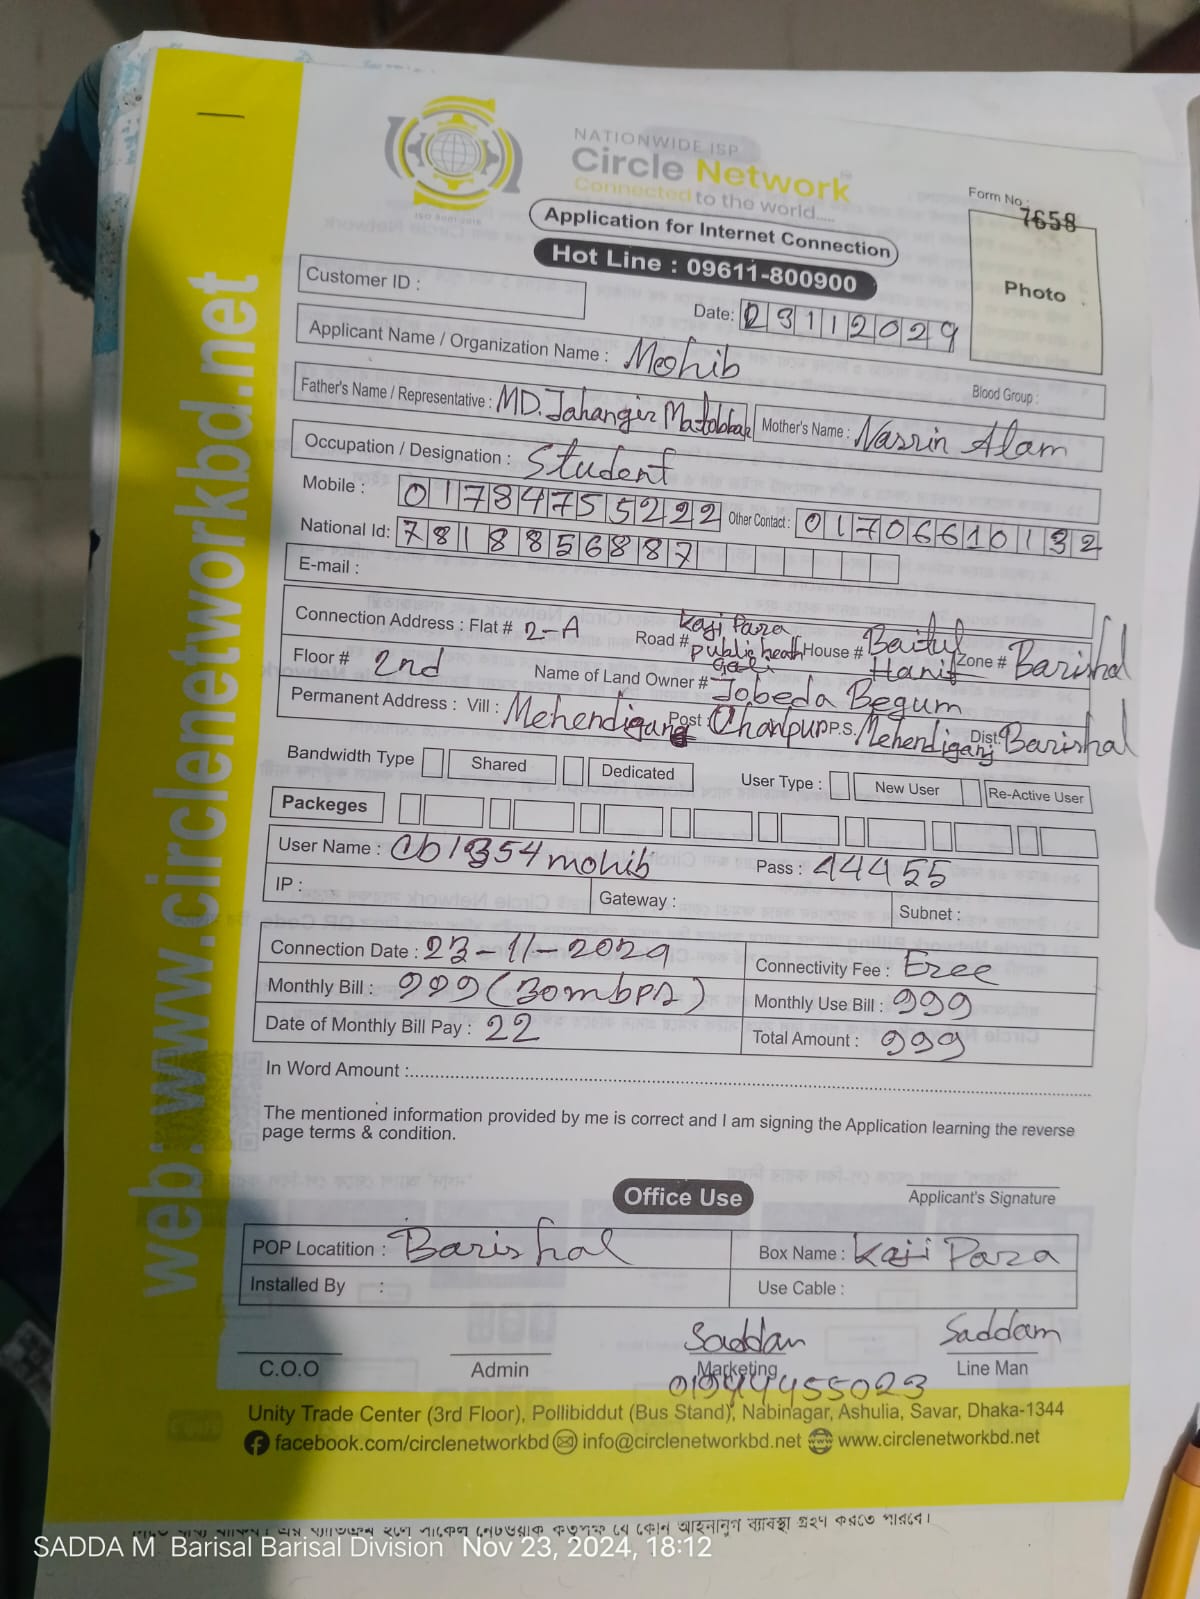 web: www.circlenetworkbd.net
NATIONWIDE ISP
Circle Network
Connected to the world.....
ISO 9001:2015
Application for Internet Connection
Hot Line : 09611-800900
Form No.: 7658
Photo
Customer ID :
Date: 23112029
Applicant Name / Organization Name : Meohib
Blood Group :
Father's Name / Representative : MD. Jahangir Matobbar Mother's Name : Nasrin Alam
Occupation / Designation : Student
Mobile : 01784755222 Other Contact : 01706610132
National Id: 7818856887
E-mail :
Connection Address : Flat # 2-A Road # Kaji Para public heath Gali House # Baitul Hanif Zone # Barishal
Floor # 2nd Name of Land Owner # Jobeda Begum
Permanent Address : Vill : Mehendiganj Post : Chanpur P.S. Mehendiganj Dist: Barishal
Bandwidth Type Shared Dedicated User Type : New User Re-Active User
Packeges
User Name : cb1354mohib Pass : 44455
IP : Gateway : Subnet :
Connection Date : 23-11-2029 Connectivity Fee : Free
Monthly Bill : 999 (30mbps) Monthly Use Bill : 999
Date of Monthly Bill Pay : 22 Total Amount : 999
In Word Amount :
The mentioned information provided by me is correct and I am signing the Application learning the reverse
page terms & condition.
Office Use
Applicant's Signature
POP Locatition : Barishal Box Name : Kaji Para
Installed By : Use Cable :
Saddam Saddam
C.O.O Admin Marketing Line Man
01944455023
Unity Trade Center (3rd Floor), Pollibiddut (Bus Stand), Nabinagar, Ashulia, Savar, Dhaka-1344
facebook.com/circlenetworkbd info@circlenetworkbd.net www.circlenetworkbd.net
কোন আইনানুগ ব্যবস্থা গ্রহণ করতে পারবে।
SADDA M Barisal Barisal Division Nov 23, 2024, 18:12